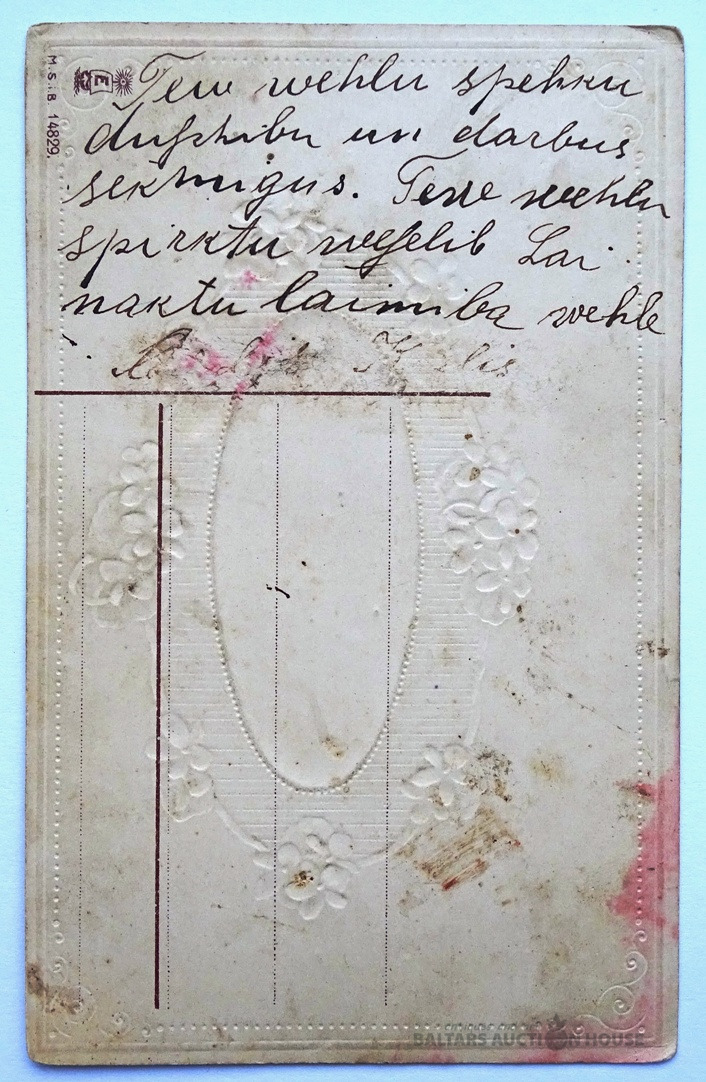 Tew wehlu spehku
dufchibu un darbus
sekmigus. Tewe wehlu
spirktu wefelib Lai
naktu laimiba wehle
M.S.i.B. 14829.
BALTARS AUCTION HOUSE